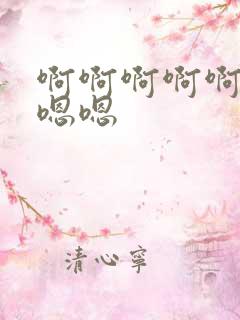 啊啊啊啊啊
嗯嗯
清心寧